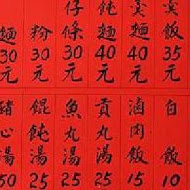 羹飯35元
羹麵40元
飩麵40元
仔條30元
粉30元
麵30元
白飯10
滷肉飯15
貢丸湯25
魚丸湯25
餛飩湯25
豬心湯50